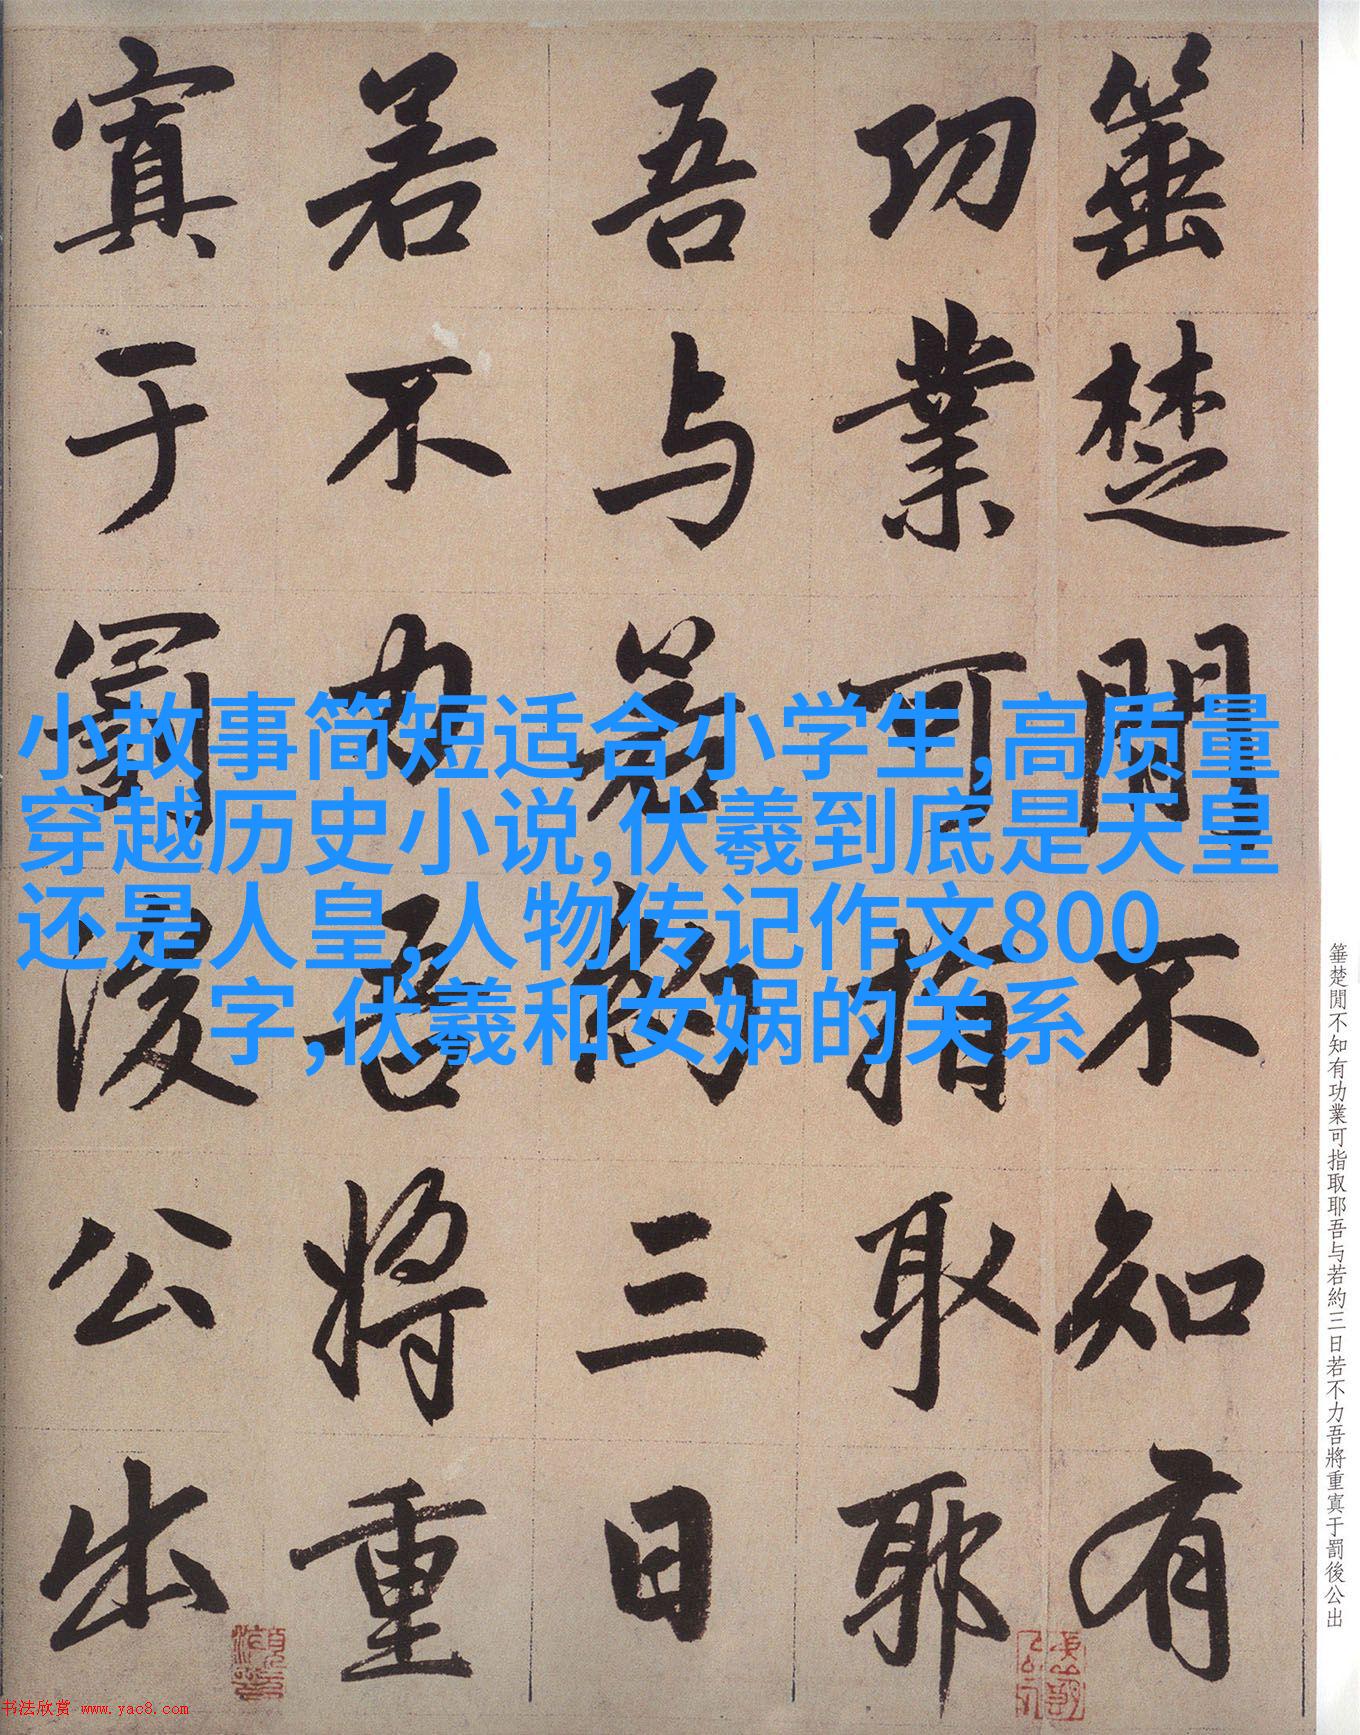 箠楚閒不知有
功業可指取耶
吾与若約三日
若不力吾將重
寘于罰後公出
小故事简短适合小学生,高质量
穿越历史小说,伏羲到底是天皇
还是人皇,人物传记作文800
字,伏羲和女娲的关系
箠楚閒不知有功業可指取耶吾与若約三日若不力吾將重寘于罰後公出
书法欣赏 www.yac8.com